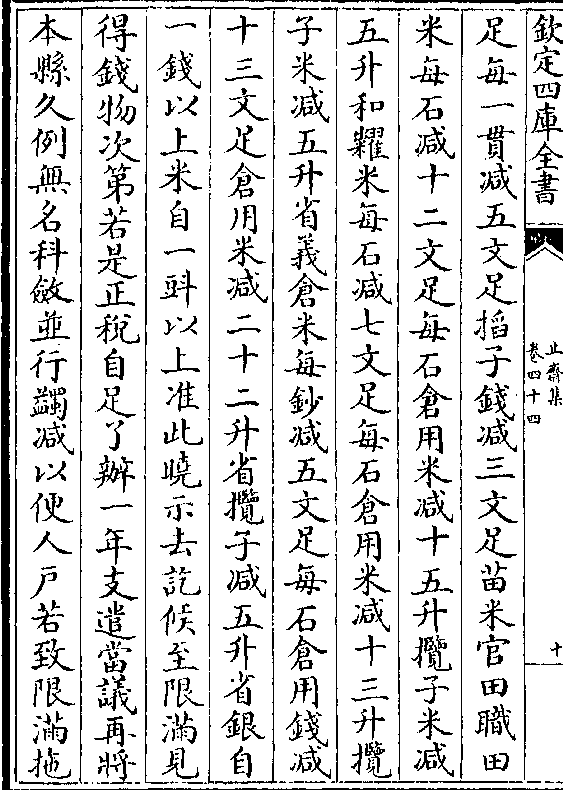 欽定四庫全書
止齋集
卷四十四
十
足每一貫减五文足搯子錢减三文足苗米官田職田
米每石减十二文足每石倉用米减十五升攬子米减
五升和糴米每石减七文足每石倉用米减十三升攬
子米减五升省義倉米每鈔减五文足每石倉用錢减
十三文足倉用米减二十二升省攬子减五升省銀自
一錢以上米自一㪷以上准此曉示去訖候至限滿見
得錢物次第若是正稅自足了辦一年支遣當議再將
本縣久例無名科斂並行蠲减以便人戶若致限滿拖